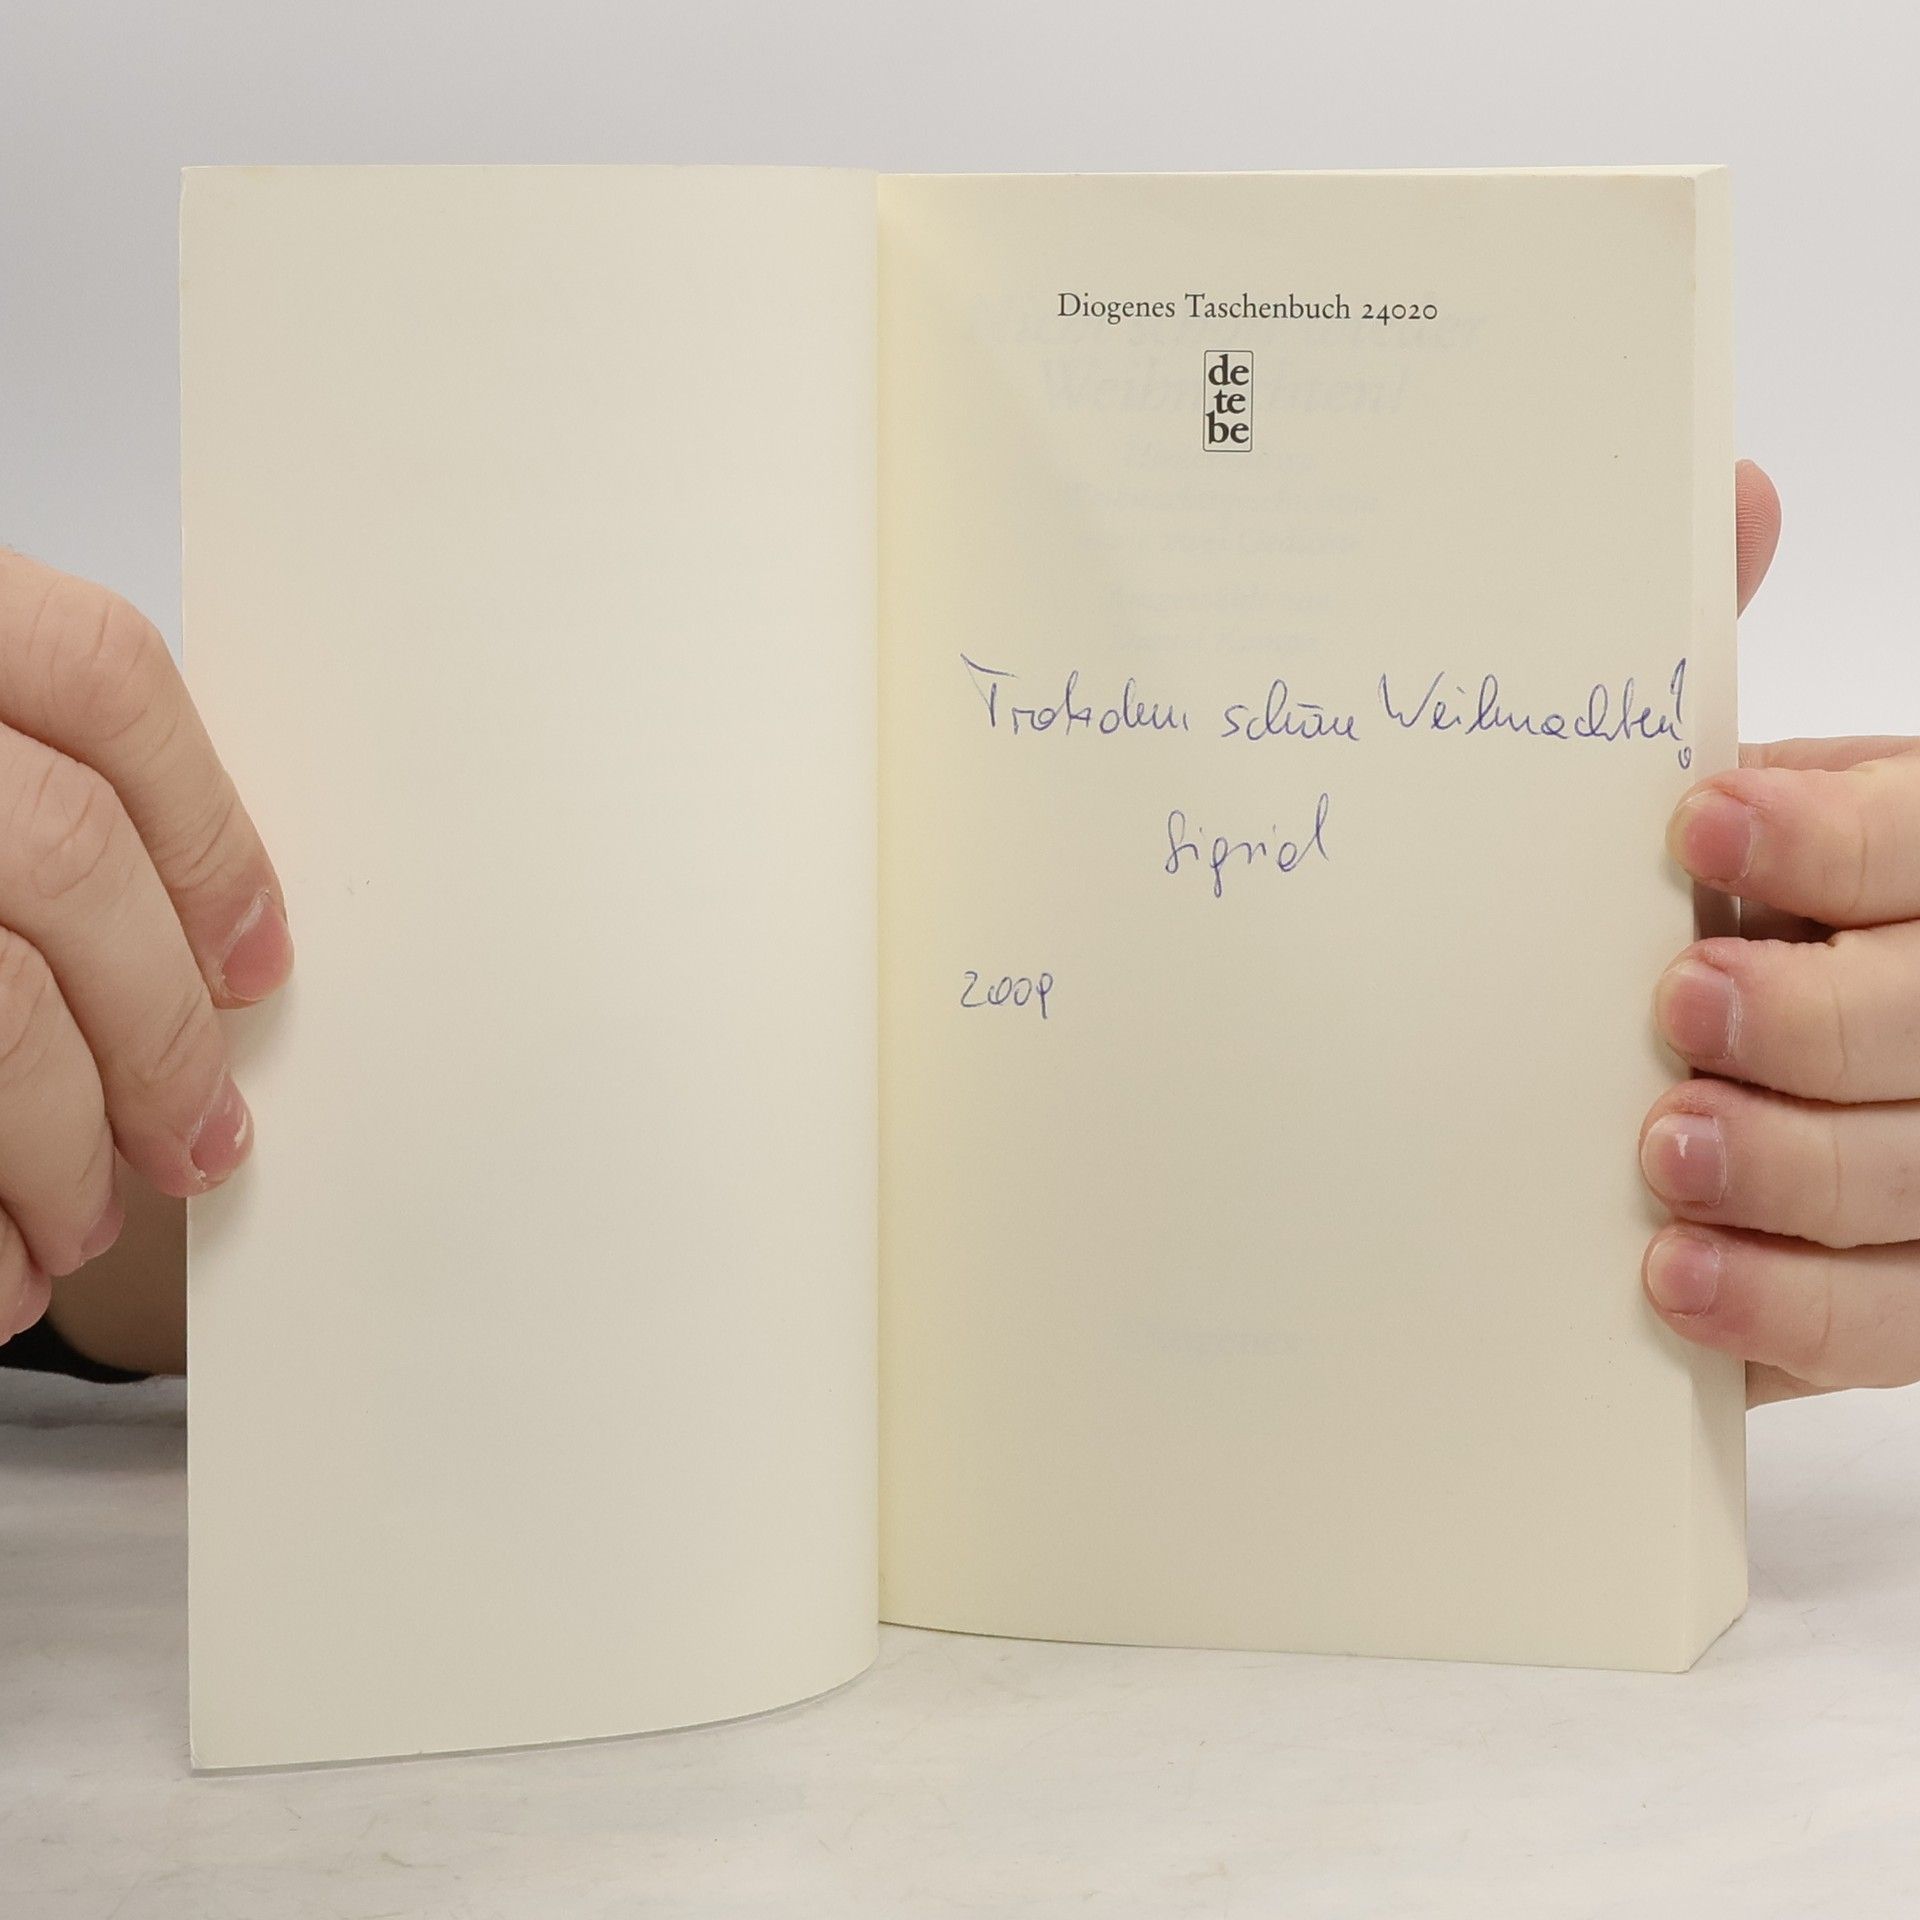 Diogenes Taschenbuch 24020
de
te
be
Weihnachten!
Trotzdem schöne Weihnachten!
Sigrid
2009